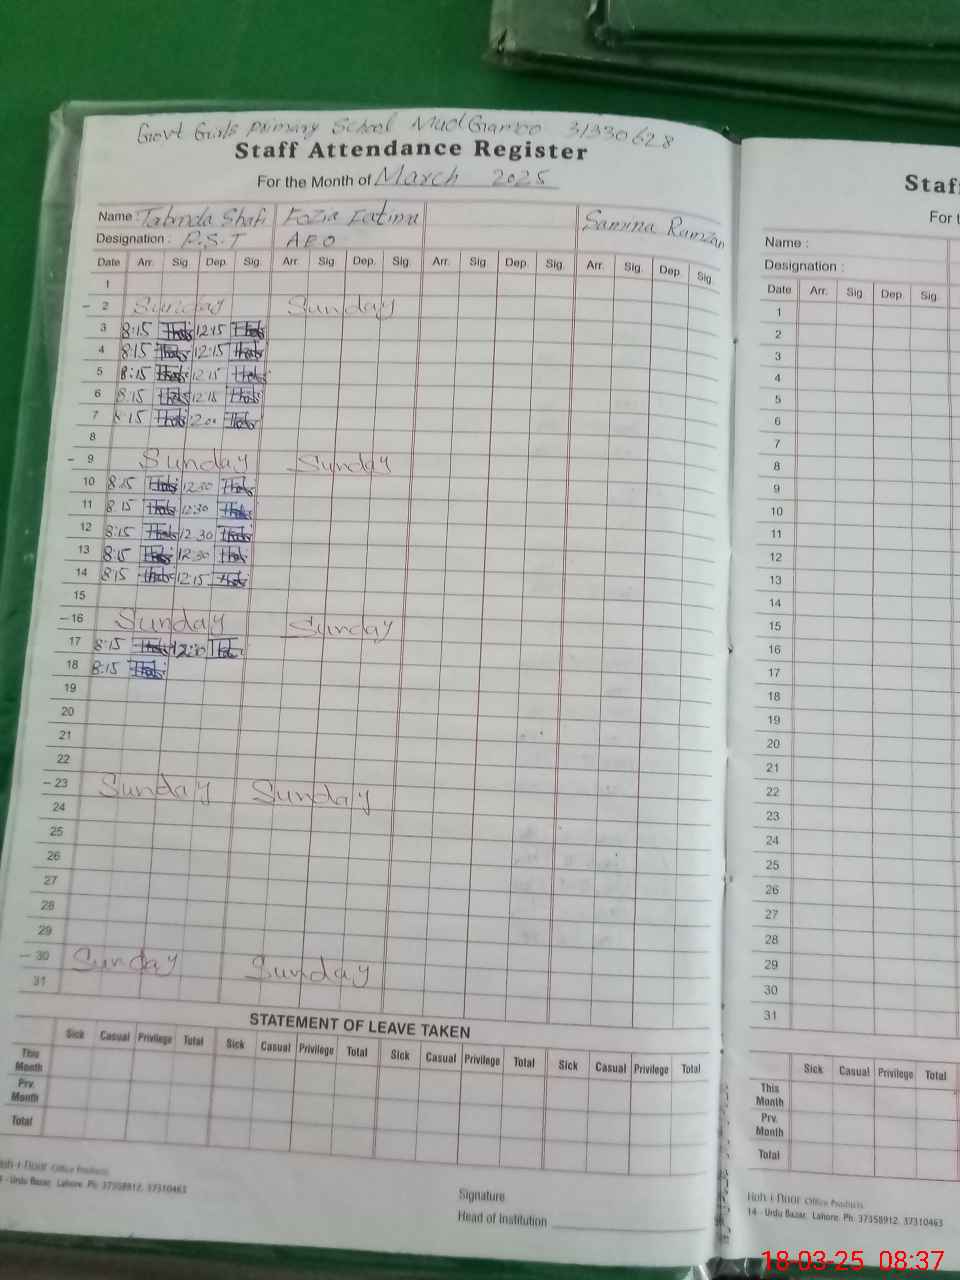 Govt Girls Primary School Mud 31330628
Staff Attendance Register
For the Month of March 2025
Name : Tabinda Shafi Fozia Fatima Samina Ramzan
Designation : P.S.T AEO
Date Arr. Sig. Dep. Sig. Arr. Sig. Dep. Sig. Arr. Sig. Dep. Sig. Arr. Sig. Dep. Sig.
1
- 2 Sunday Sunday
3 8:15 12:15
4 8:15 12:15
5 8:15 12:15
6 8:15 12:15
7 8:15
8
- 9 Sunday Sunday
10 8:15 12:30
11 8:15 12:30
12 8:15 12:30
13 8:15 12:30
14 8:15 12:15
15
- 16 Sunday Sunday
17 8:15 12:30
18 8:15
19
20
21
22
- 23 Sunday Sunday
24
25
26
27
28
29
- 30 Sunday Sunday
31
STATEMENT OF LEAVE TAKEN
Sick Casual Privilege Total Sick Casual Privilege Total Sick Casual Privilege Total Sick Casual Privilege Total
This Month
Prv. Month
Total
Office Products
Urdu Bazar, Lahore. Ph: 37358912, 37310463
Signature
Head of Institution
Staf
For t
Name :
Designation :
Date Arr. Sig. Dep. Sig.
1
2
3
4
5
6
7
8
9
10
11
12
13
14
15
16
17
18
19
20
21
22
23
24
25
26
27
28
29
30
31
Sick Casual Privilege Total
This Month
Prv. Month
Total
Koh-i-Noor Office Products
14 - Urdu Bazar, Lahore. Ph: 37358912, 37310463
18-03-25 08:37